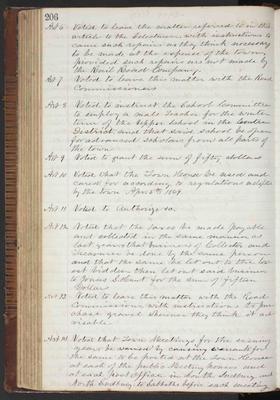 206
Art 6 Voted to leave the matter referred to in this
article to the Selectmen with instructions to
cause such repairs as they think necessary
to be made at the expense of the town,
provided such repairs are not made by
the Rail Road Company.
Art 7 Voted to leave this matter with the Road
Commissioners
Art 8 Voted to instruct the School Committee
to employ a male teacher for the winter
term of the upper school in the Center
District, and that said school be open
for advanced scholars from all parts of
the town
Art 9 Voted to grant the sum of fifty dollars
Art 10 Voted that the Town House be used and
cared for according to regulations adopted
by the town
Art 11 Voted to authorize so.
Art 12 Voted that the taxes be made payable
and collected in the same manner as
last year, that business of Collector and
Treasurer be done by the same person
and that the same be let out to the low
est bidder then let out said business
to for the sum of fifteen
Dollars
Art 13 Voted to leave this matter with the Road
Commissioners, with instructions to pur
chase gravel wherever they think it ad
visable
Art 14 Voted that Town Meetings for the ensuing
year be warned by
the same to be posted at the Town House
at each of the public Meeting houses and
at each Post Office, in South Sudbury and
North Sudbury, Sabbaths before each meeting